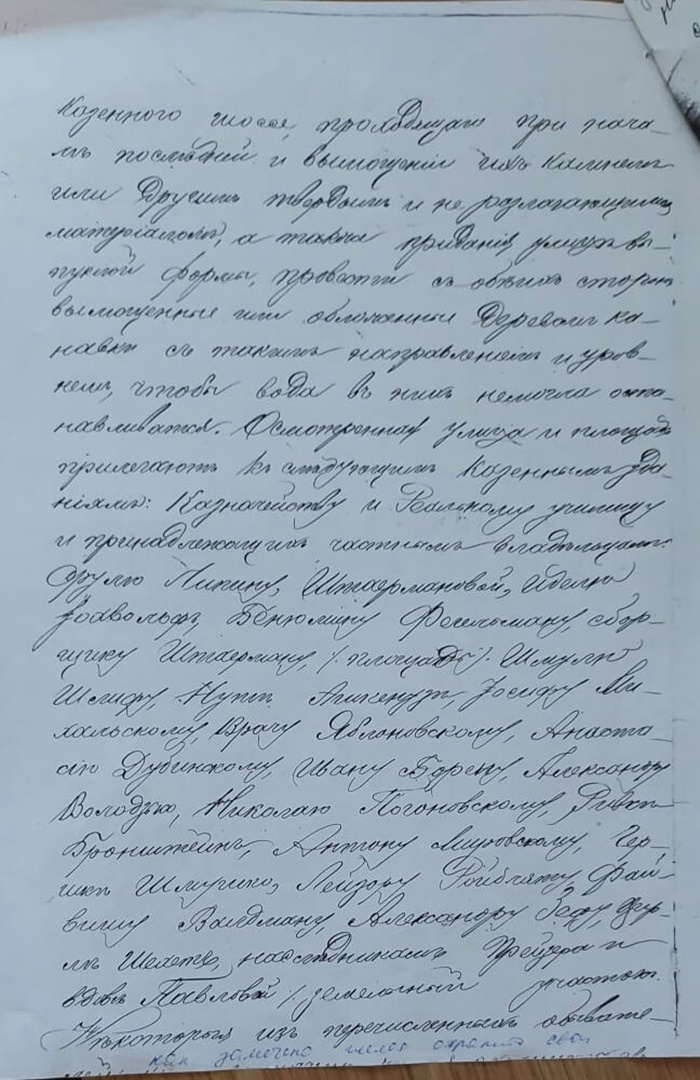 казеннаго шоссе, проходящаго при нача-
лѣ послѣдней и вымощеніи ихъ камнемъ
или другимъ твердымъ и не разлагающимся
матеріаломъ, а также приданія улицѣ вы-
пуклой формы, провести съ обѣихъ сторонъ
вымощенныя или обложенныя деревомъ ка-
навки съ такимъ направленіемъ и уров-
немъ, чтобы вода въ нихъ немогла оста-
навливатся. Осмотренная улица и площадь
прилегаютъ къ слѣдующимъ казеннымъ зда-
ніямъ: Казначейству и Реальному училищу
и принадлежащимъ частнымъ владѣльцамъ:
Фрулю Липину, Штаермановой,
Бенюмину Фегельману, сбор-
щику Штаерману, /. площадь /. Шмулю
Шлифу, Іосифу Ми-
хальскому, Врачу Яблоновскому, Анаста-
сію Дубинскому, Ивану Борену, Александру
Володзко, Николаю Погоновскому, Ривкѣ
Бронштейнъ, Антону Мировскому, Гер-
шкѣ Шмушко, Лейзору Ройблату, Фай-
вишу Валдману, Александру
наслѣдникамъ Прейера и
вдовѣ Павловой /. земельный участокъ.
Нѣкоторыя изъ перечисленныхъ обывате-